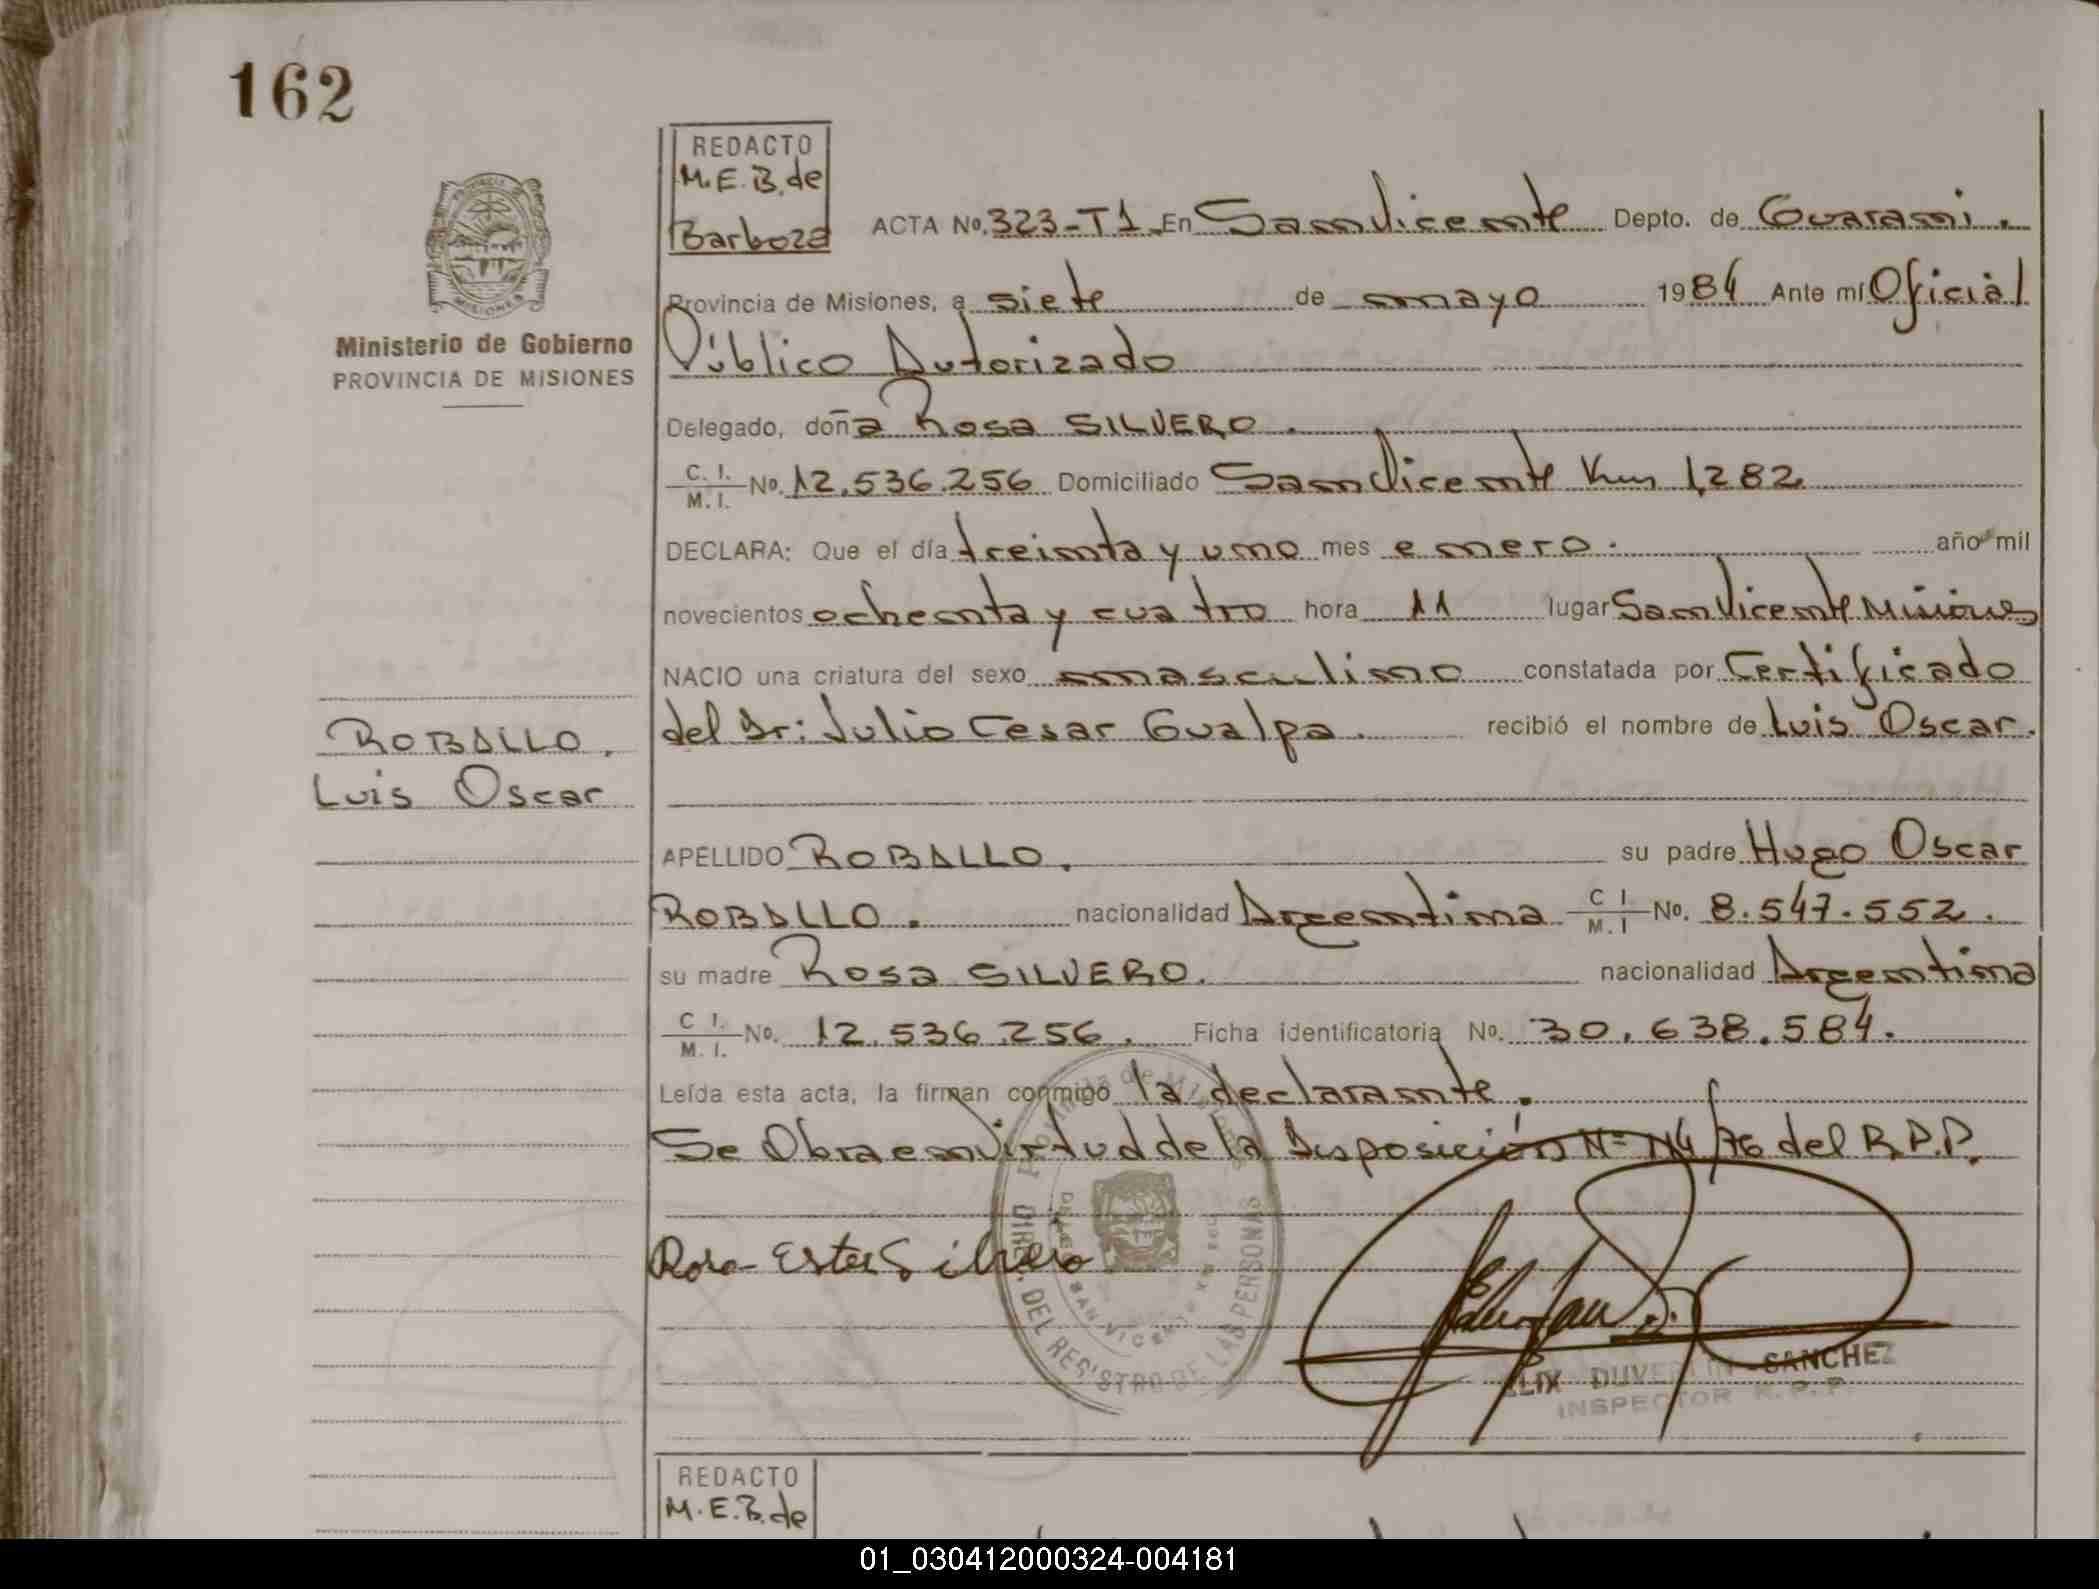 162
REDACTO
M.E.B. de
Barboza
ACTA No. 323-T1. En San Vicente Depto. de Guarani.
Provincia de Misiones, a siete de mayo 1984 Ante mí Oficial
Público Autorizado
Ministerio de Gobierno
PROVINCIA DE MISIONES
Delegado, doña Rosa SILVERO.
C. I. / M. I. No. 12.536.256 Domiciliado San Vicente Km 1,282
DECLARA: Que el día treinta y uno mes enero. año mil
novecientos ochenta y cuatro hora 11 lugar San Vicente Misiones
NACIO una criatura del sexo masculino constatada por Certificado
del Dr: Julio Cesar Gualpa. recibió el nombre de Luis Oscar.
ROBALLO.
Luis Oscar
APELLIDO ROBALLO. su padre Hugo Oscar
ROBALLO. nacionalidad Argentina C I / M. I No. 8.547.552.
su madre Rosa SILVERO. nacionalidad Argentina
C I. / M. I. No. 12.536.256. Ficha identificatoria No. 30.638.584.
Leída esta acta, la firman conmigo la declarante.
Se Obra en Virtud de la Disposición Nº 114/76 del R.P.P.
Rosa Ester Silvero
DEL REGISTRO DE LAS PERSONAS
SAN VICENTE
SANCHEZ
INSPECTOR R.P.P.
REDACTO
M.E.B. de
01_030412000324-004181